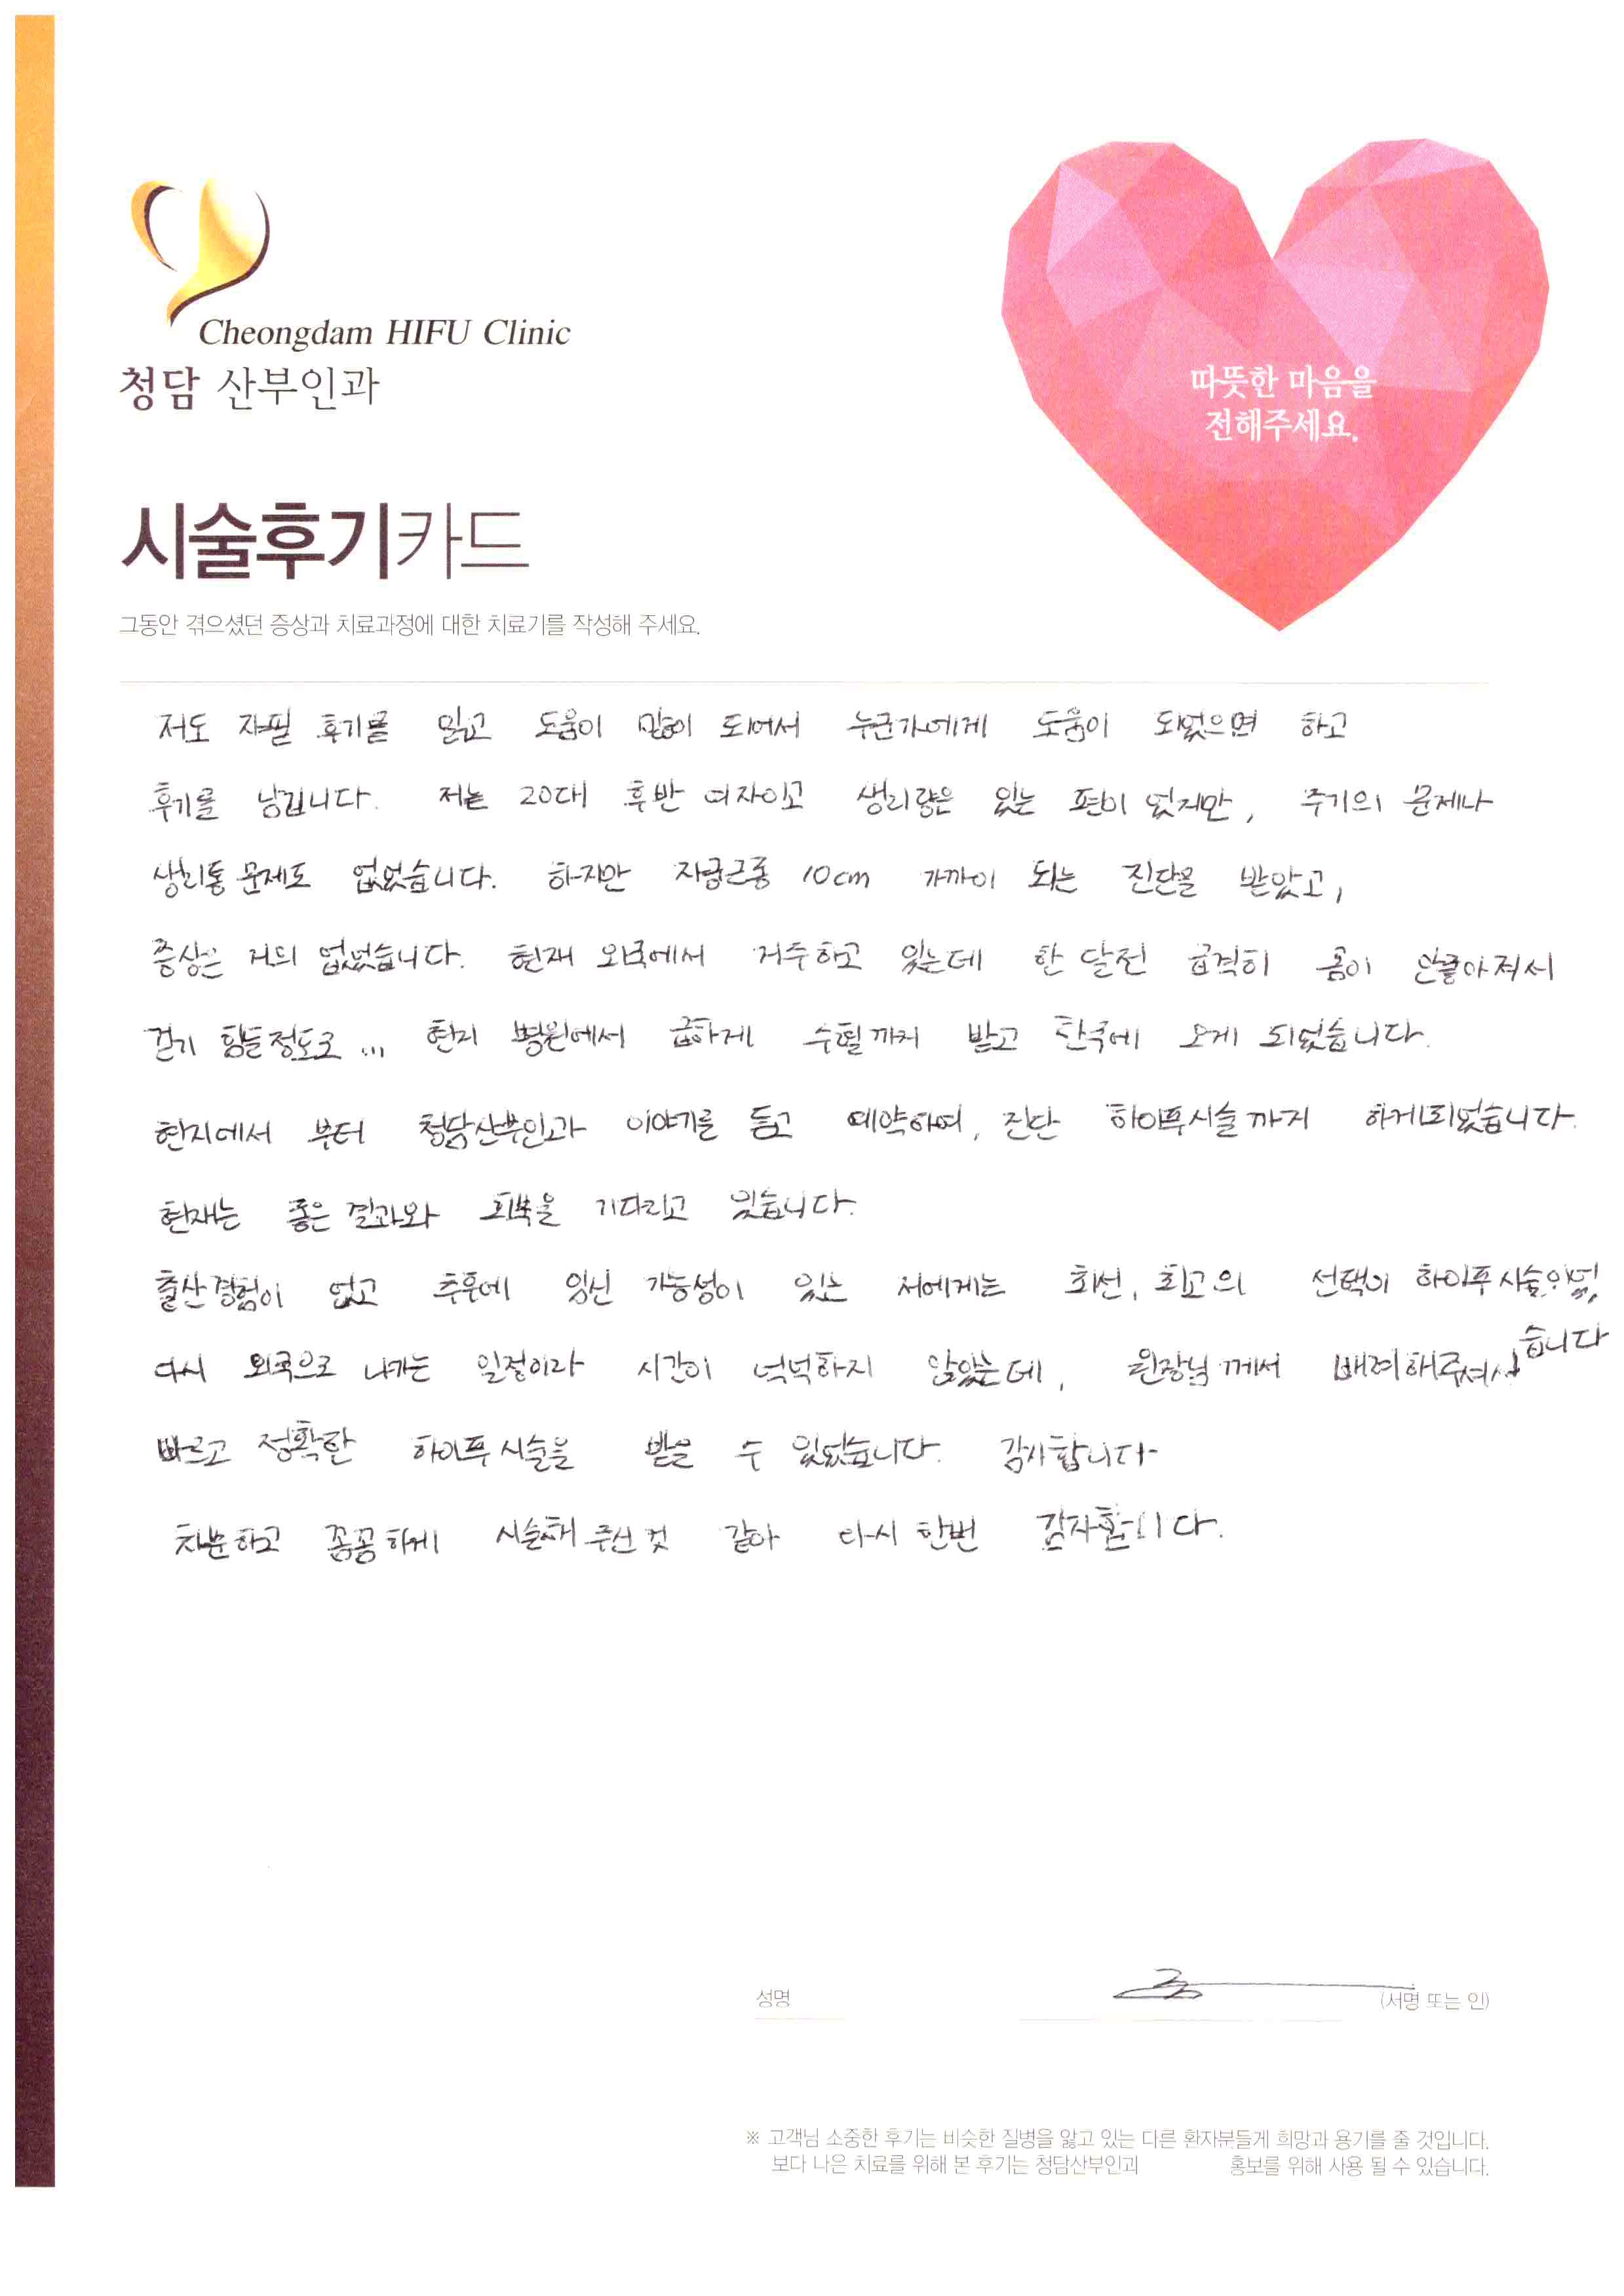 Cheongdam HIFU Clinic
청담 산부인과
따뜻한 마음을
전해주세요.
시술후기카드
그동안 겪으셨던 증상과 치료과정에 대한 치료기를 작성해 주세요.
저도 자필 후기를 읽고 도움이 많이 되어서 누군가에게 도움이 되었으면 하고
후기를 남깁니다. 저는 20대 후반 여자이고 생리량은 있는 편이 었지만, 주기의 문제나
생리통 문제도 없었습니다. 하지만 자궁근종 10cm 가까이 되는 진단을 받았고,
증상은 거의 없었습니다. 현재 외국에서 거주하고 있는데 한 달전 급격히 몸이 안좋아져서
걷기 힘들정도로 ... 현지 병원에서 급하게 수혈까지 받고 한국에 오게 되었습니다.
현지에서 부터 청담산부인과 이야기를 듣고 예약하여, 진단 하이푸시술까지 하게되었습니다.
현재는 좋은 결과와 회복을 기다리고 있습니다.
출산경험이 없고 추후에 임신 가능성이 있는 저에게는 최선, 최고의 선택이 하이푸시술이었
습니다
다시 외국으로 나가는 일정이라 시간이 넉넉하지 않았는데, 원장님께서 배려해주셔서
빠르고 정확한 하이푸시술을 받을 수 있었습니다. 감사합니다
차분하고 꼼꼼하게 시술해 주신 것 같아 다시 한번 감사합니다.
성명
(서명 또는 인)
※ 고객님 소중한 후기는 비슷한 질병을 앓고 있는 다른 환자분들게 희망과 용기를 줄 것입니다.
보다 나은 치료를 위해 본 후기는 청담산부인과 홍보를 위해 사용 될 수 있습니다.